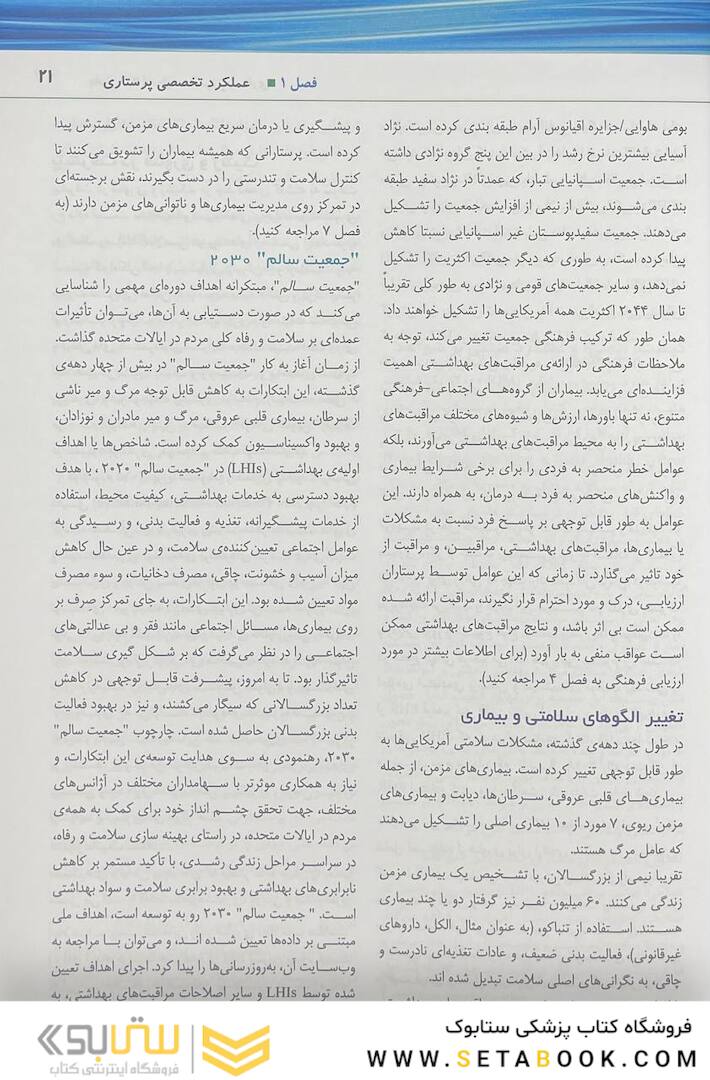 فصل ۱ ■ عملکرد تخصصی پرستاری
۲۱
بومی هاوایی/جزایره اقیانوس آرام طبقه بندی کرده است. نژاد
آسیایی بیشترین نرخ رشد را در بین این پنج گروه نژادی داشته
است. جمعیت اسپانیایی تبار، که عمدتاً در نژاد سفید طبقه
بندی می‌شوند، بیش از نیمی از افزایش جمعیت را تشکیل
می‌دهند. جمعیت سفیدپوستان غیر اسپانیایی نسبتا کاهش
پیدا کرده است، به طوری که دیگر جمعیت اکثریت را تشکیل
نمی‌دهد، و سایر جمعیت‌های قومی و نژادی به طور کلی تقریباً
تا سال ۲۰۴۴ اکثریت همه آمریکایی‌ها را تشکیل خواهند داد.
همان طور که ترکیب فرهنگی جمعیت تغییر می‌کند، توجه به
ملاحظات فرهنگی در ارائه‌ی مراقبت‌های بهداشتی اهمیت
فزاینده‌ای می‌یابد. بیماران از گروه‌های اجتماعی-فرهنگی
متنوع، نه تنها باورها، ارزش‌ها و شیوه‌های مختلف مراقبت‌های
بهداشتی را به محیط مراقبت‌های بهداشتی می‌آورند، بلکه
عوامل خطر منحصر به فردی را برای برخی شرایط بیماری
و واکنش‌های منحصر به فرد به درمان، به همراه دارند. این
عوامل به طور قابل توجهی بر پاسخ فرد نسبت به مشکلات
یا بیماری‌ها، مراقبت‌های بهداشتی، مراقبین، و مراقبت از
خود تاثیر می‌گذارد. تا زمانی که این عوامل توسط پرستاران
ارزیابی، درک و مورد احترام قرار نگیرند، مراقبت ارائه شده
ممکن است بی اثر باشد، و نتایج مراقبت‌های بهداشتی ممکن
است عواقب منفی به بار آورد (برای اطلاعات بیشتر در مورد
ارزیابی فرهنگی به فصل ۴ مراجعه کنید).
تغییر الگوهای سلامتی و بیماری
در طول چند دهه‌ی گذشته، مشکلات سلامتی آمریکایی‌ها به
طور قابل توجهی تغییر کرده است. بیماری‌های مزمن، از جمله
بیماری‌های قلبی عروقی، سرطان‌ها، دیابت و بیماری‌های
مزمن ریوی، ۷ مورد از ۱۰ بیماری اصلی را تشکیل می‌دهند
که عامل مرگ هستند.
تقریبا نیمی از بزرگسالان، با تشخیص یک بیماری مزمن
زندگی می‌کنند. ۶۰ میلیون نفر نیز گرفتار دو یا چند بیماری
هستند. استفاده از تنباکو، (به عنوان مثال، الکل، داروهای
غیرقانونی)، فعالیت بدنی ضعیف، و عادات تغذیه‌ای نادرست و
چاقی، به نگرانی‌های اصلی سلامت تبدیل شده اند.
و پیشگیری یا درمان سریع بیماری‌های مزمن، گسترش پیدا
کرده است. پرستارانی که همیشه بیماران را تشویق می‌کنند تا
کنترل سلامت و تندرستی را در دست بگیرند، نقش برجسته‌ای
در تمرکز روی مدیریت بیماری‌ها و ناتوانی‌های مزمن دارند (به
فصل ۷ مراجعه کنید).
"جمعیت سالم" ۲۰۳۰
"جمعیت سالم"، مبتکرانه اهداف دوره‌ای مهمی را شناسایی
می‌کند که در صورت دستیابی به آن‌ها، می‌توان تأثیرات
عمده‌ای بر سلامت و رفاه کلی مردم در ایالات متحده گذاشت.
از زمان آغاز به کار "جمعیت سالم" در بیش از چهار دهه‌ی
گذشته، این ابتکارات به کاهش قابل توجه مرگ و میر ناشی
از سرطان، بیماری قلبی عروقی، مرگ و میر مادران و نوزادان،
و بهبود واکسیناسیون کمک کرده است. شاخص‌ها یا اهداف
اولیه‌ی بهداشتی (LHIs) در "جمعیت سالم" ۲۰۲۰، با هدف
بهبود دسترسی به خدمات بهداشتی، کیفیت محیط، استفاده
از خدمات پیشگیرانه، تغذیه و فعالیت بدنی، و رسیدگی به
عوامل اجتماعی تعیین‌کننده‌ی سلامت، و در عین حال کاهش
میزان آسیب و خشونت، چاقی، مصرف دخانیات، و سوء مصرف
مواد تعیین شده بود. این ابتکارات، به جای تمرکز صِرف بر
روی بیماری‌ها، مسائل اجتماعی مانند فقر و بی عدالتی‌های
اجتماعی را در نظر می‌گرفت که بر شکل گیری سلامت
تاثیرگذار بود. تا به امروز، پیشرفت قابل توجهی در کاهش
تعداد بزرگسالانی که سیگار می‌کشند، و نیز در بهبود فعالیت
بدنی بزرگسالان حاصل شده است. چارچوب "جمعیت سالم"
۲۰۳۰، رهنمودی به سوی هدایت توسعه‌ی این ابتکارات، و
نیاز به همکاری موثرتر با سهامداران مختلف در آژانس‌های
مختلف، جهت تحقق چشم انداز خود برای کمک به همه‌ی
مردم در ایالات متحده، در راستای بهینه سازی سلامت و رفاه،
در سراسر مراحل زندگی رشدی، با تأکید مستمر بر کاهش
نابرابری‌های بهداشتی و بهبود برابری سلامت و سواد بهداشتی
است. " جمعیت سالم" ۲۰۳۰ رو به توسعه است، اهداف ملی
مبتنی بر داده‌ها تعیین شده اند، و می‌توان با مراجعه به
وب‌سایت آن، به‌روزرسانی‌ها را پیدا کرد. اجرای اهداف تعیین
شده توسط LHIs و سایر اصلاحات مراقبت‌های بهداشتی، به
فروشگاه کتاب پزشکی ستابوک
WWW.SETABOOK.COM
ستابوک
فروشگاه اینترنتی کتاب